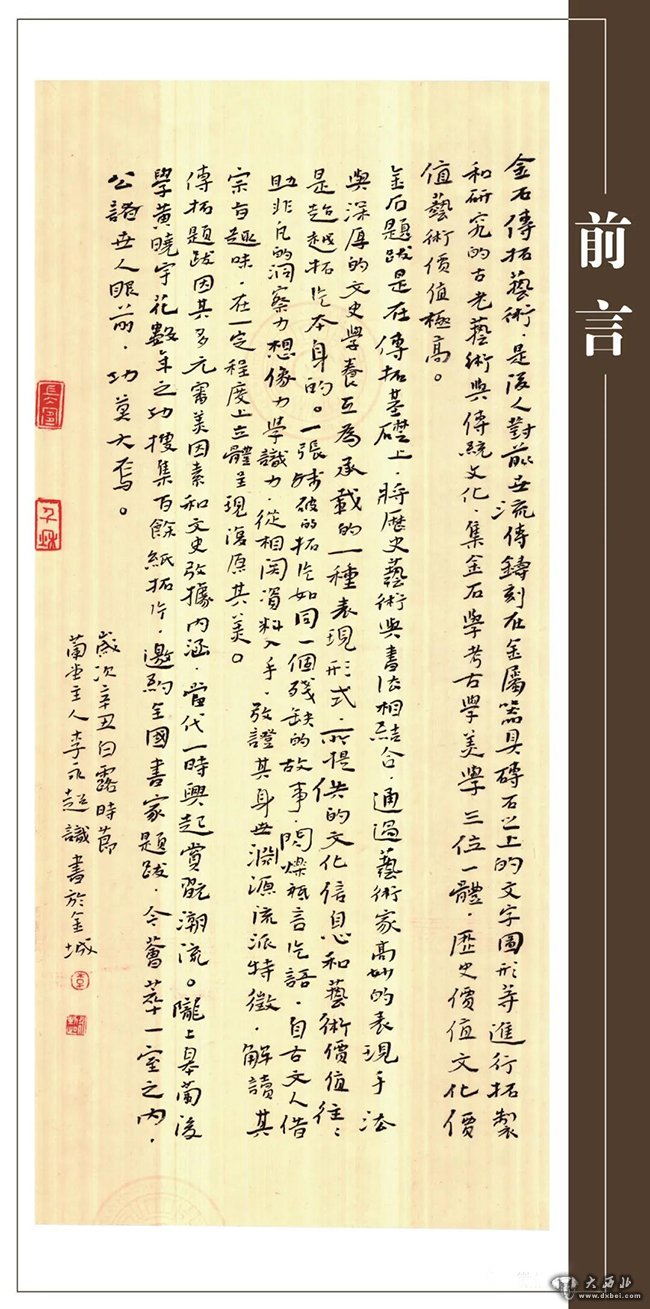 前言
金石傳拓藝術，是後人對前世流傳鑄刻在金屬器具磚石之上的文字圖形等進行拓製
和研究的古老藝術與傳統文化，集金石學考古學美學三位一體，歷史價值文化價
值藝術價值極高。
金石題跋是在傳拓基礎上，將歷史藝術與書法相結合，通過藝術家高妙的表現手法
與深厚的文史學養互為承載的一種表現形式，所提供的文化信息和藝術價值往〻
是超越拓片本身的。一張殘破的拓片如同一個殘缺的故事，閃爍祗言片語，自古文人借
助非凡的洞察力想像力學識力，從相関資料入手，攷證其身世淵源流派特徵，解讀其
宗旨趣味，在一定程度上立體呈現復原其美。
傳拓題跋因其多元審美因素和文史攷據內涵，當代一時興起賞玩潮流。隴上皋蘭後
學黃曉宇花數年之功搜集百餘紙拓片，邀約全國書家題跋，今薈萃一室之內，
公諸世人眼前，功莫大焉。
歲次辛丑白露時節
蘭堂主人李永超識書於金城
大西北
www.dxbei.com